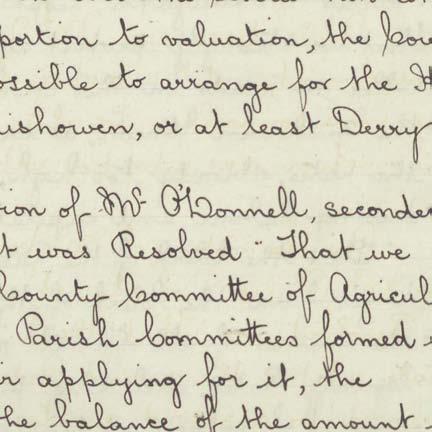 portion to valuation, the Cou
ossible to arrange for the H
ishowen, or at least Derry
ion of Mr O'Donnell, seconde
t was Resolved "That we
County Committee of Agricul
Parish Committees formed
r applying for it, the
he balance of the amount